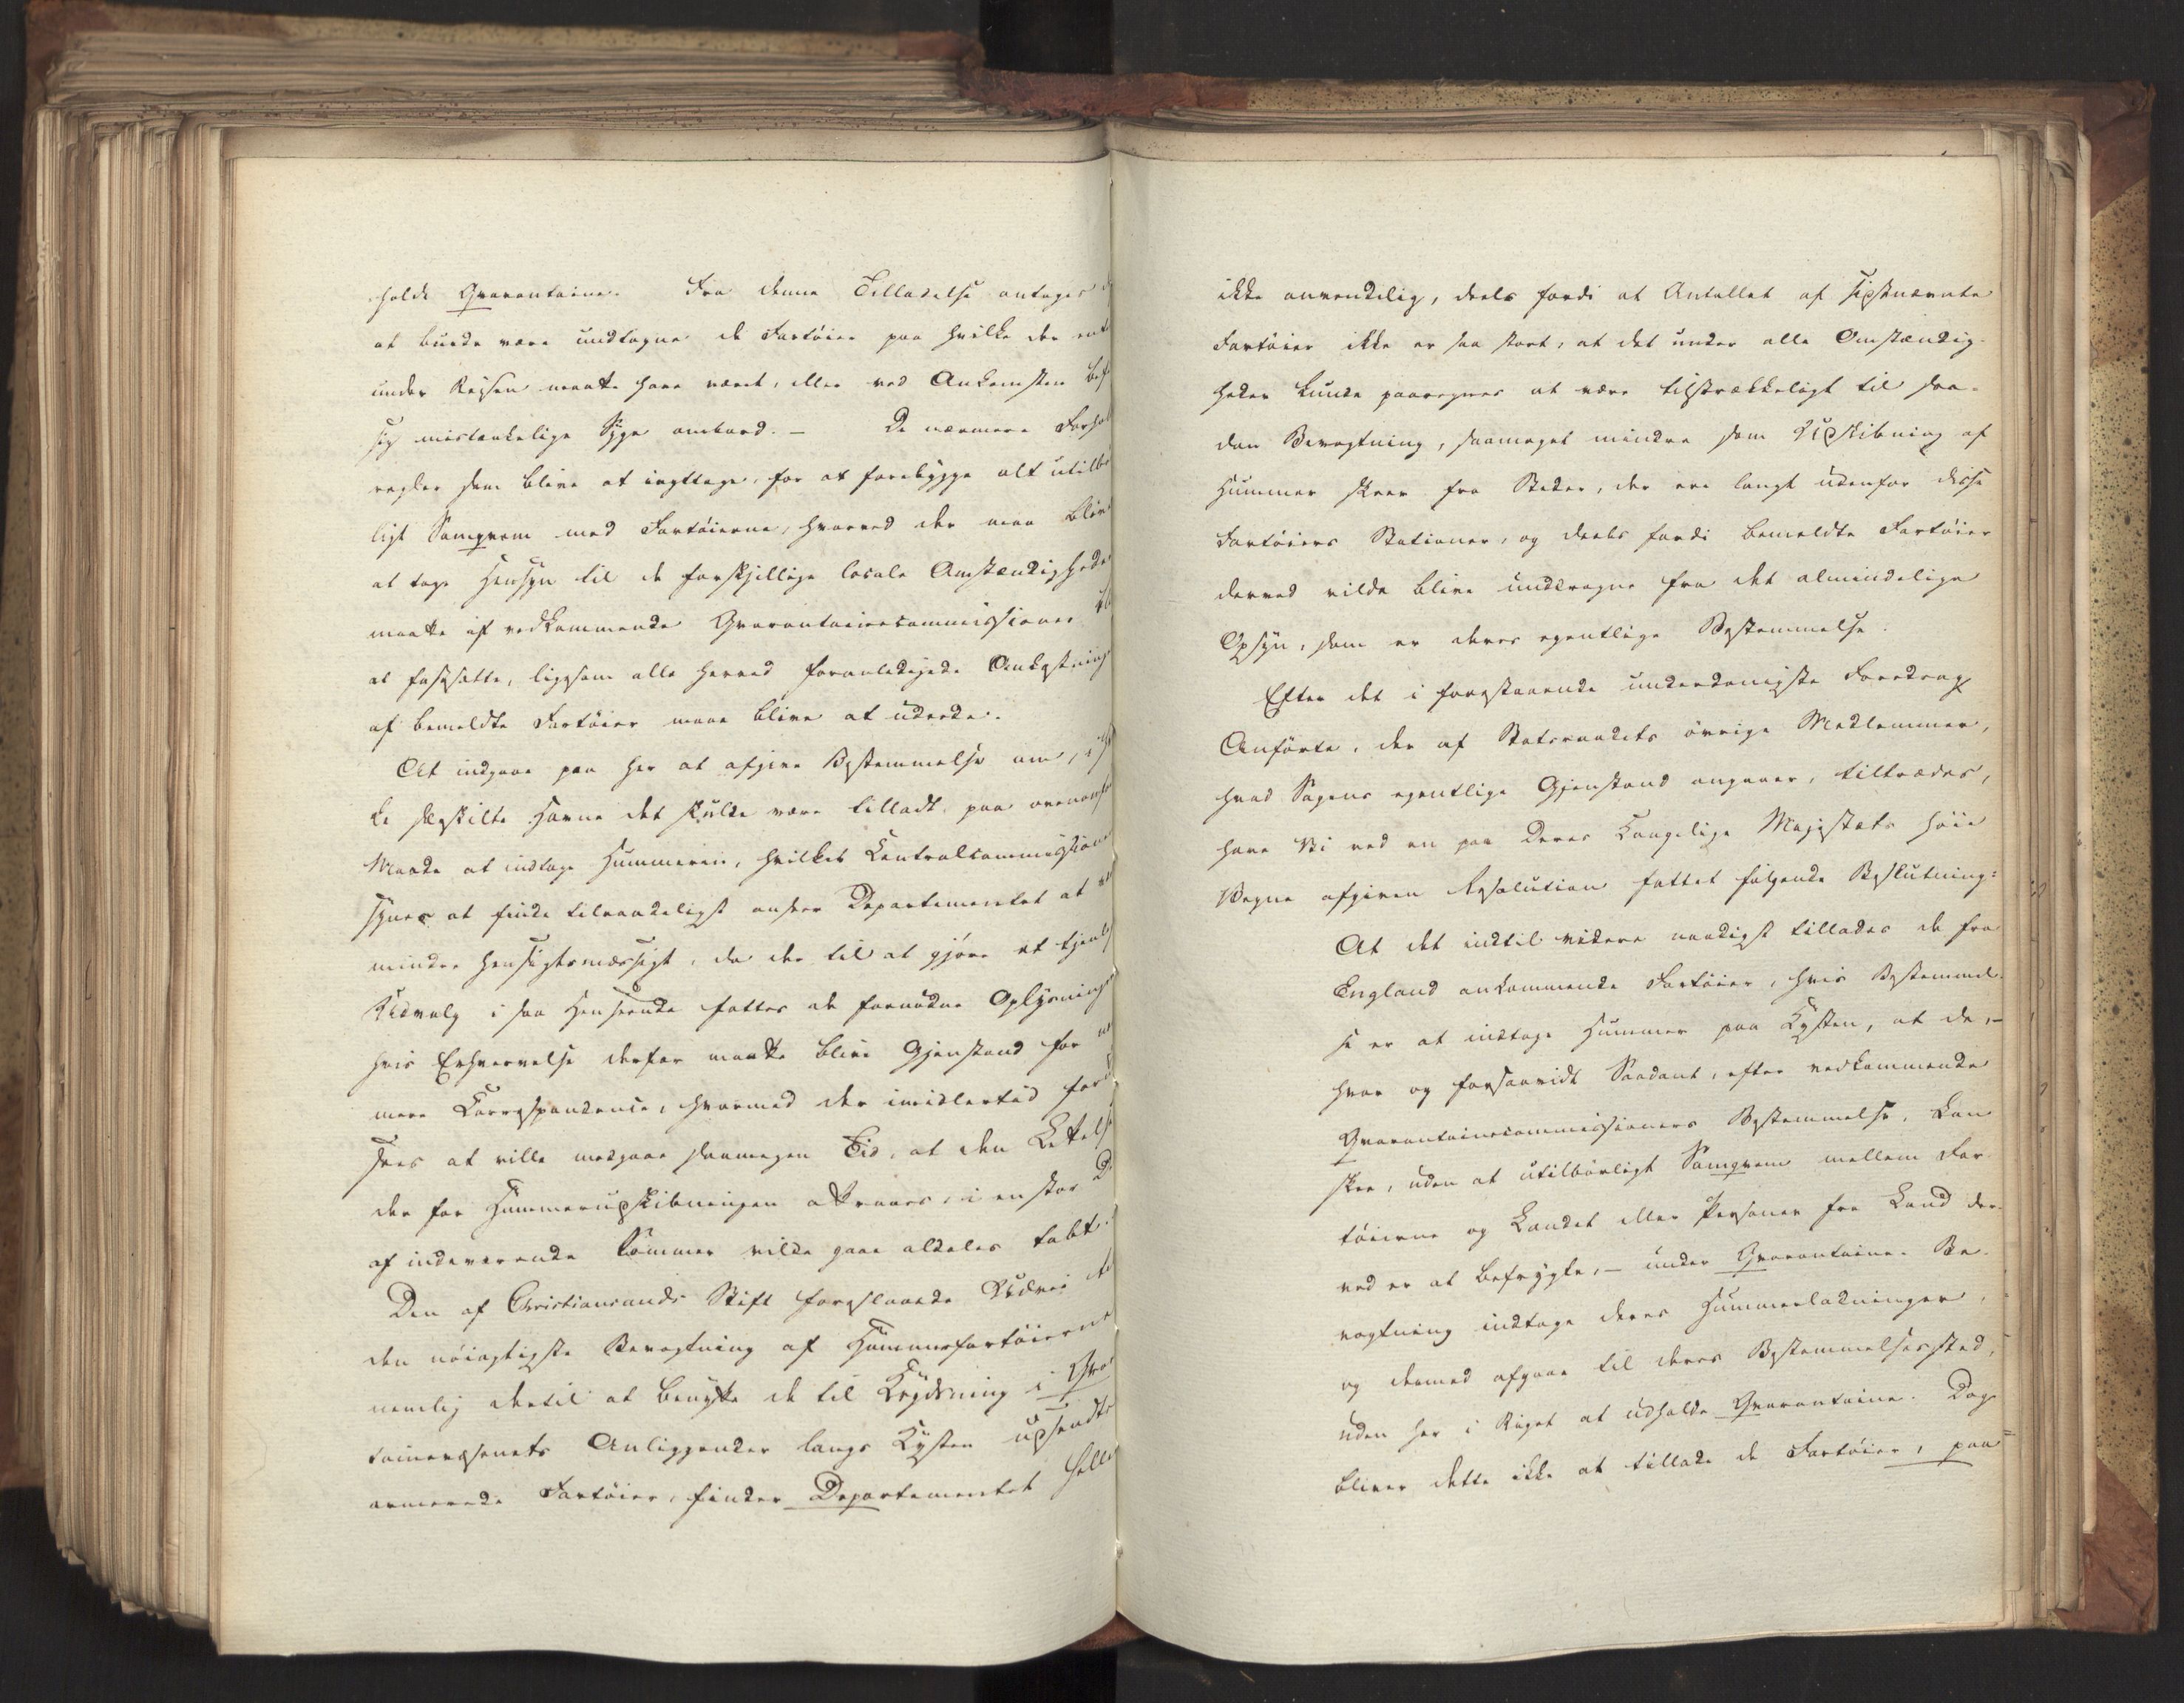 holde Qvarantaine. Fra denne Tilladelse antages
at burde være undtagne de Fartøier paa hvilke der
under Reisen maatte have været, eller ved Ankomsten
sig mistænkelige Syge ombord. — De nærmere
regler som blive at iagttage, for at forebygge alt
ligt Samqvem med Fartøierne, hvorved der maa
at tage Hensyn til de forskjellige locale Omstændigheder
maatte af vedkommende Qvarantainecommissioner
at fastsætte, ligesom alle herved foranledigede
af bemeldte Fartøier maae blive at udrede.
At indgaae paa her at afgive Bestemmelse om,
ke særskilte Havne det skulde være tilladt paa
Maade at indtage Hummeren, hvilket Centralcommissionen
synes at finde tilraadeligst anseer Departementet at
mindre hensigtsmæssigt, da der til at gjøre et
Udvalg i saa Henseende fattes de fornødne
hvis Erhvervelse derfor maatte blive Gjenstand for
mere Correspondence, hvormed der imidlertid
sees at ville medgaae saamegen Tid, at den
der for Hummerudskibningen attraaes, i en stor
af indeværende Sommer vilde gaae aldeles tabt.
Den af Christiansands Stift foreslaaede Udvei
den nøiagtigste Bevogtning af Hummerfartøierne
nemlig dertil at benytte de til Krydsning i
tainevæsenets Anliggender langs Kysten udsendte
armerede Fartøier, finder Departementet
ikke anvendelig, deels fordi at Antallet af sidstnævnte
Fartøier ikke er saa stort, at det under alle Omstændig-
heder kunde paaregnes at være tilstrækkeligt til saa-
dan Bevogtning, saameget mindre som Udskibning af
Hummer skeer fra Steder, der ere langt udenfor disse
Fartøiers Stationer, og deels fordi bemeldte Fartøier
derved vilde blive unddragne fra det almindelige
Opsyn, som er deres egentlige Bestemmelse.
Efter det i foregstaaende underdanigste Foredrag
Anførte, der af Statsraadets øvrige Medlemmer,
hvad Sagens egentlige Gjenstand angaaer, tiltrædes,
have Vi ved en paa Deres Kongelige Majestæts høie
Vegne afgiven Resolution fattet følgende Beslutning:
At det indtil videre naadigst tillades de fra
England ankommende Fartøier, hvis Bestemmel-
se er at indtage Hummer paa Kysten, at de, —
hvor og forsaavidt Saadant, efter vedkommende
Qvarantainecommissioners Bestemmelse, kan
skee, uden at utilbørligt Samqvem mellem Far-
tøierne og Landet eller Personer fra Land der-
ved er at befrygte, — under Qvarantaine-Be-
vogtning indtage deres Hummerladninger,
og dermed afgaae til deres Bestemmelsessted,
uden her i Riget at udholde Qvarantaine. Dog
bliver dette ikke at tillade de Fartøier, paa